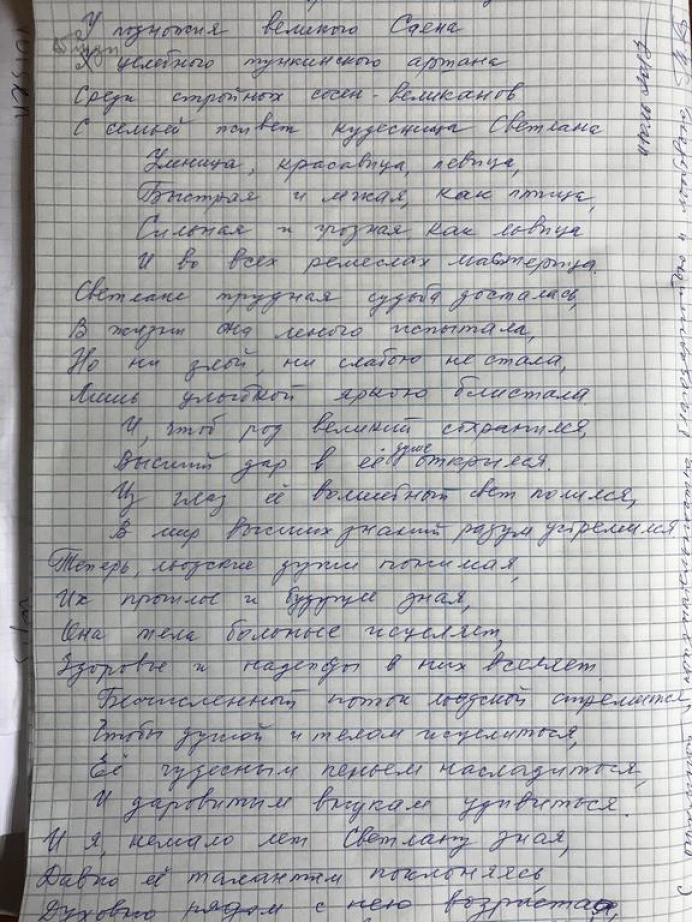 У подножия великого Саена
У целебного тункинского аршана
Среди стройных сосен-великанов
С семьёй живёт кудесница Светлана
Умница, красавица, певица,
Быстрая и лёгкая, как птица,
Сильная и грозная как львица
И во всех ремеслах мастерица.
Светлане трудная судьба досталась,
В жизни она много испытала,
Но ни злой, ни слабою не стала,
Лишь улыбкой яркою блистала.
И, чтоб род великий сохранился,
Высший дар в её душе открылся.
Из глаз её волшебный свет полился,
В мир высших знаний разум устремился
Теперь, людские души понимая,
Их прошлое и будущее зная,
Она тела больные исцеляет,
Здоровье и надежды в них вселяет.
Бесчисленный поток людской стремится
Чтобы душой и телом исцелиться,
Её чудесным пеньем насладиться,
И даровитым внукам удивиться.
И я, немало лет Светлану зная,
Давно её талантам поклоняясь
Духовно рядом с нею возрастая,
С благодарностью и любовью
июль 2017